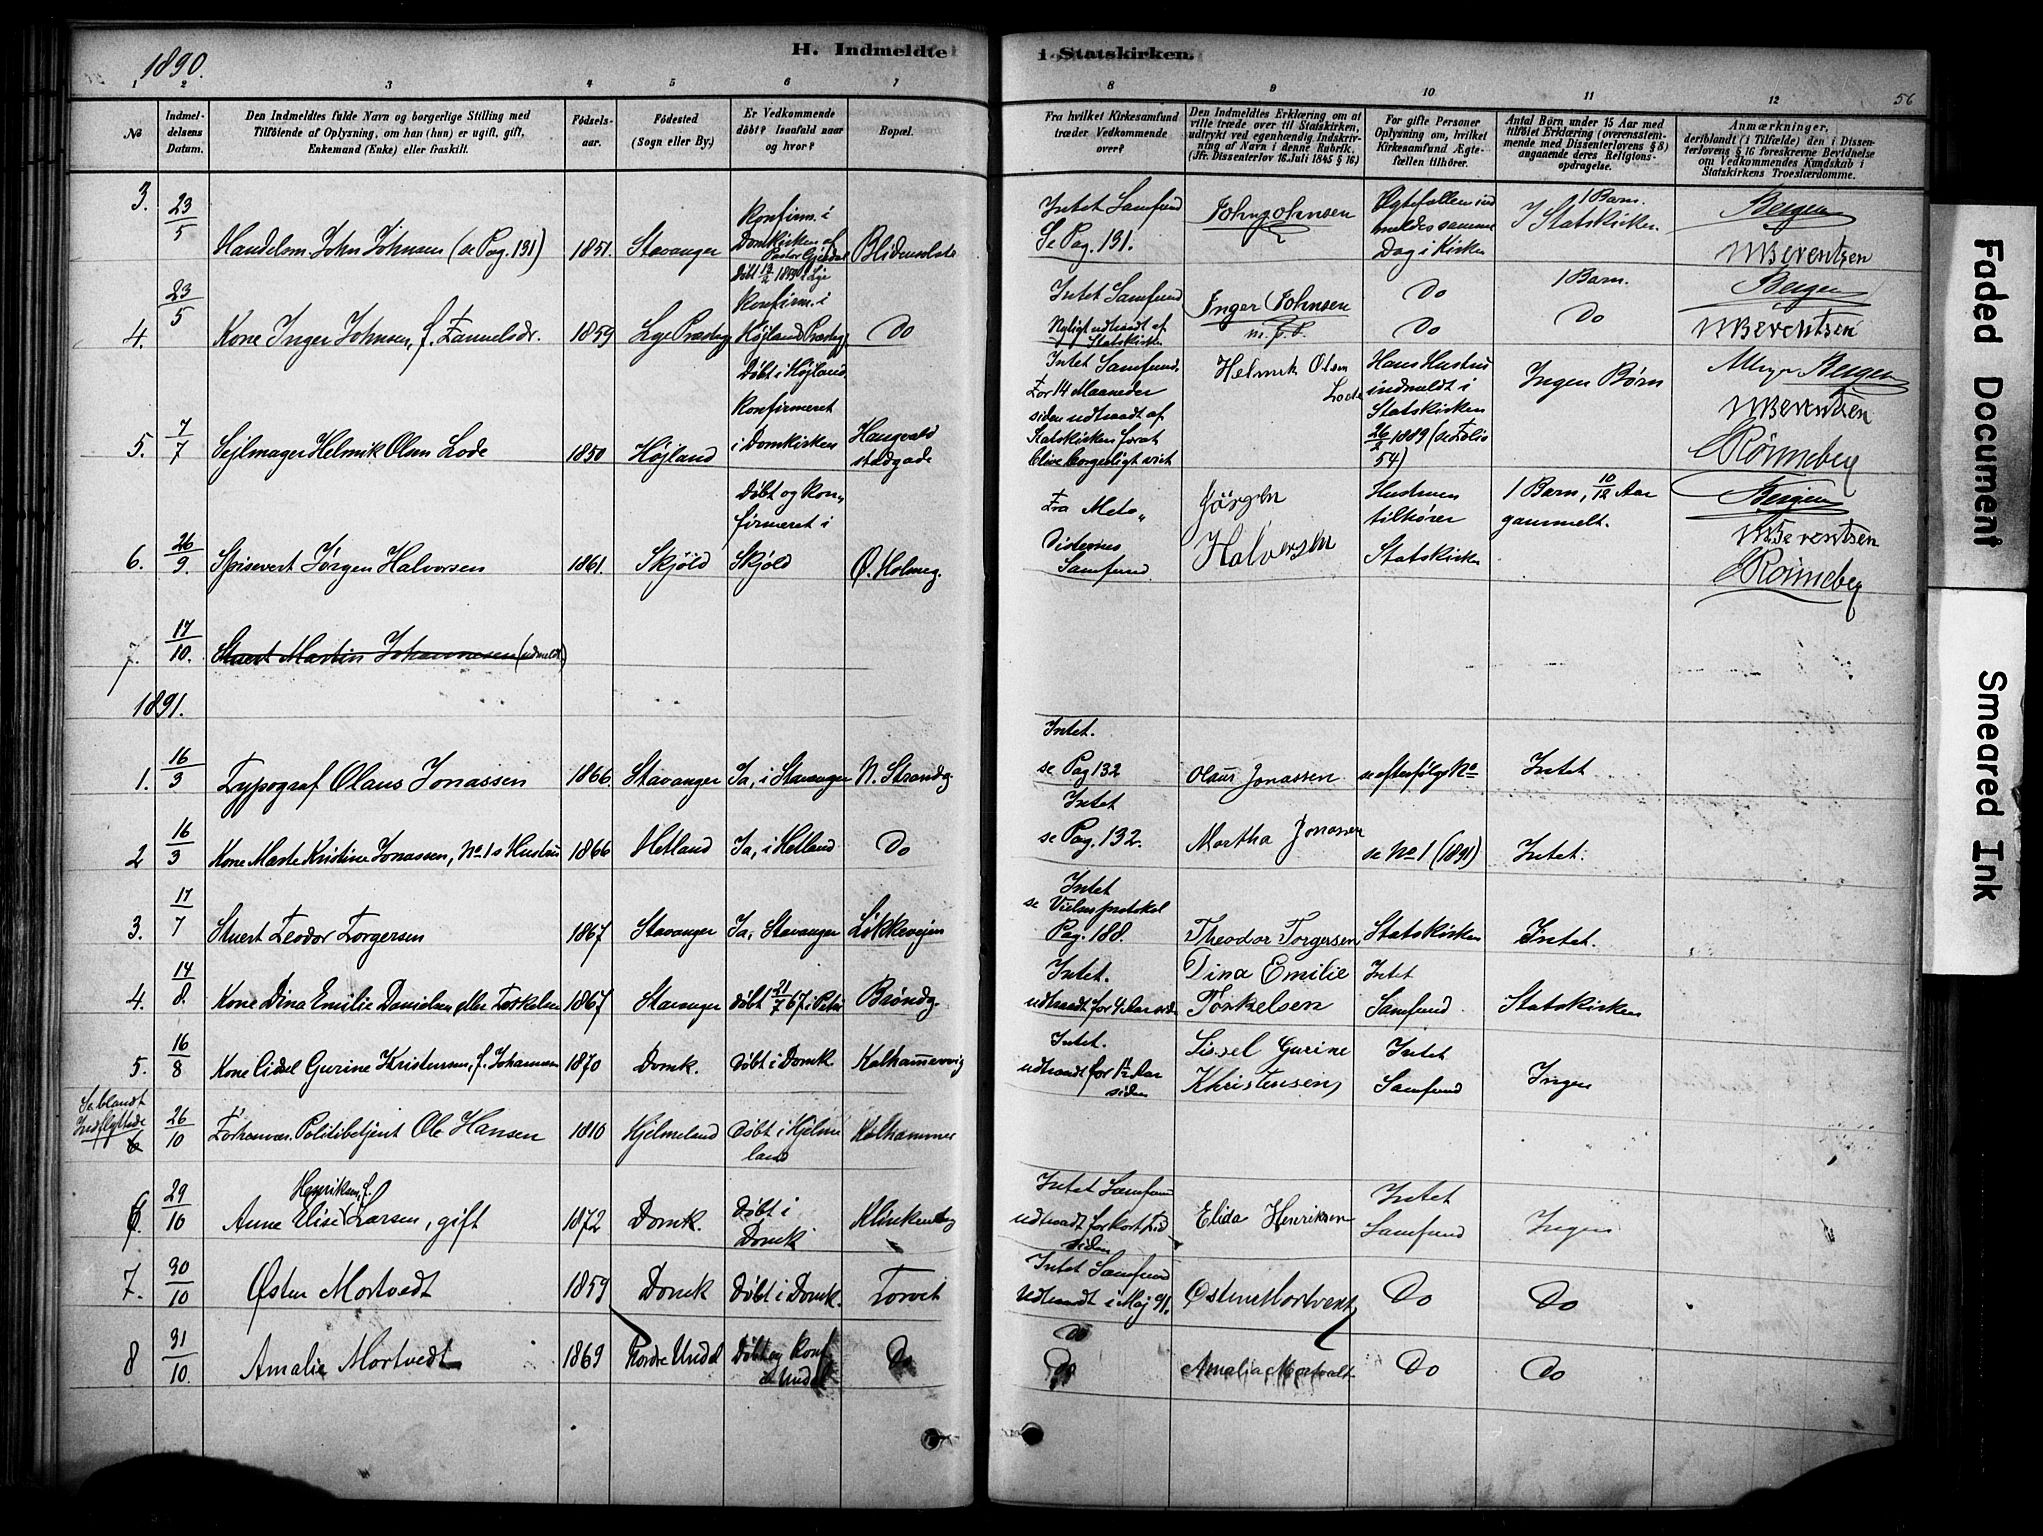 1890.
H. Indmeldte i Statskirken.
56
1 2 3 4 5 6 7 8 9 10 11 12
No
Indmel-
delsens
Datum.
Den Indmeldtes fulde Navn og borgerlige Stilling med
Tilföiende af Oplysning, om han (hun) er ugift, gift,
Enkemand (Enke) eller fraskilt.
Födsels-
aar.
Födested
(Sogn eller By.)
Er Vedkommende
döbt? Isaafald naar
og hvor?
Bopæl.
Fra hvilket Kirkesamfund
træder Vedkommende
over?
Den Indmeldtes Erklæring om at
ville træde over til Statskirken,
udtrykt ved egenhændig Indskriv-
ning af Navn i denne Rubrik.
(Jfr. Dissenterlov 16 Juli 1845 § 16)
For gifte Personer
Oplysning om, hvilket
Kirkesamfund Ægte-
fællen tilhörer.
Antal Börn under 15 Aar med
tilföiet Erklæring (overensstem-
mende med Dissenterlovens § 8)
angaaende deres Religions-
opdragelse.
Anmærkninger,
deriblandt (i Tilfælde) den i Dissen-
terlovens § 16 foreskrevne Bevidnelse
om Vedkommendes Kundskab i
Statskirkens Troeslærdomme.
3. 23/5
Handelsm. John Johnsen (se Pag. 131)
1851. Stavanger
Konfirm. i
Domkirken af
Pastor
Blidensolstr.
Intet Samfund
Se Pag. 131.
John Johnsen
Ægtefællen ind
meldes samme
Dag i Kirken
1 Barn.
I Statskirken.
Bergen
Berentsen
4. 23/5
Kone Inger Johnsen, f.
1859
Konfirm. i
Do
Intet Samfund
Nyligt udtraadt af
Statskirken
Inger Johnsen
m. f. P.
Do
Do
1 Barn.
Do
Bergen
Berentsen
5. 7/7
Sejlmager Helmik Olsen Lode
1850 Højland
Døbt i Højland
Konfirmeret
i Domkirken
Intet Samfund.
For 14 Maaneder
siden udtraadt af
Statskirken forat
blive borgerligt viet
Helmik Olsen
Lode
Hans Hustru
indmeldt i
Statskirken
1889 (se Folio
54)
Ingen Børn
Bergen
Berentsen
Rönneberg
6. 26/9.
Spisevert Jørgen Halvorsen
1861. Skjöld
Døbt og Kon„
firmeret i
Skjöld
Ø. Holmeg.
Fra Meto„
Samfund
Jörgen
Halvorsen
Hustruen
tilhører
Statskirken
1 Barn, 10/12 Aar
gammelt.
Bergen
Berentsen
Rönneberg
7. 17/10.
Stuert Martin Johannesen (udmeldt)
1891.
1. 16/3
Typograf Olaus Jonassen
1866. Stavanger Ja, i Stavanger N. Strandg.
Intet.
se Pag 132
Olaus Jonassen
se efterfølge No
Intet
2 16/3
Kone Marte Kristine Jonassen, No 1s Hustru
1866 Hetland Ja, i Hetland Do
Intet
se Pag. 132.
Martha Jonassen
se No 1 (1891)
Intet.
3. 17/7
Stuert Teodor Torgersen
1867 Stavanger Ja, Stavanger Løkkeveien
Intet
se Vielsesprotokol
Pag. 188.
Theodor Torgersen
Statskirken
Intet.
4. 14/8.
Kone Dina Emilie Danielsen eller Torkelsen
1867 Stavanger Døbt 21/7 67 i Petri Brøndg.
Intet.
udtraadt for 4 Aar siden
Dina Emilie
Torkelsen
Intet
Samfund
Statskirken
5. 16/8
Kone Gurine Kristensen, f. Johannesen
1870 Domk. Døbt i Domk. Kalhammervig
Intet.
udtraadt for 1½ Aar
siden
Sissel Gurine
Khristensen,
Intet
Samfund
Ingen
Se blandt
Indflyttede
6 26/10
Forhenvær. Politibetjent Ole Hansen
1810 Hjelmeland
Døbt i Hjelme
land
Kalhammer
6. 29/10
Henriksen, f.
Anne Elise Larsen, gift
1872 Domk.
Døbt i
Domk
Klinkenbg
Intet Samfund
udtraadt for kort Tid
siden
Elida Henriksen
Intet
Samfund
Ingen
7. 30/10
Østen Mortvedt
1859 Domk Døbt i Domk. Torvet
Intet Samfund
Udtraadt i Maj 91.
Østen Mortvent
Do
Do
8 31/10.
Amalie Mortvedt
1869 Nordre Undal
Døbt og Konf.
i Undal
Do
Do
Do
Amalia Mortvedt
Do
Do
Faded Document
Smeared Ink